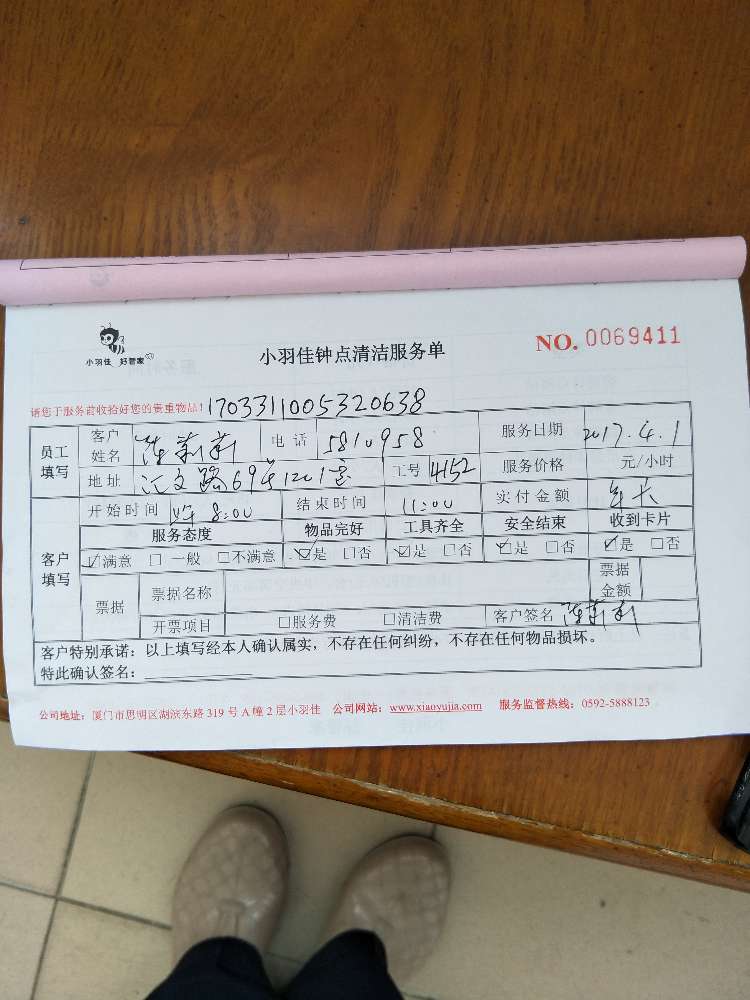 小羽佳 好管家
小羽佳钟点清洁服务单
NO. 0069411
请您于服务前收拾好您的贵重物品! 1703311005320638
员工填写
客户姓名 电话 5810958 服务日期 2017.4.1
地址 路69号1201室 工号 4152 服务价格 元/小时
客户填写
开始时间 8:00 结束时间 11:00 实付金额 年卡
服务态度 物品完好 工具齐全 安全结束 收到卡片
☑满意 □一般 □不满意 ☑是 □否 ☑是 □否 ☑是 □否 ☑是 □否
票据 票据名称 票据金额
开票项目 □服务费 □清洁费 客户签名
客户特别承诺：以上填写经本人确认属实，不存在任何纠纷，不存在任何物品损坏。
特此确认签名：
公司地址：厦门市思明区湖滨东路 319 号 A 幢 2 层小羽佳 公司网站：www.xiaoyujia.com 服务监督热线：0592-5888123